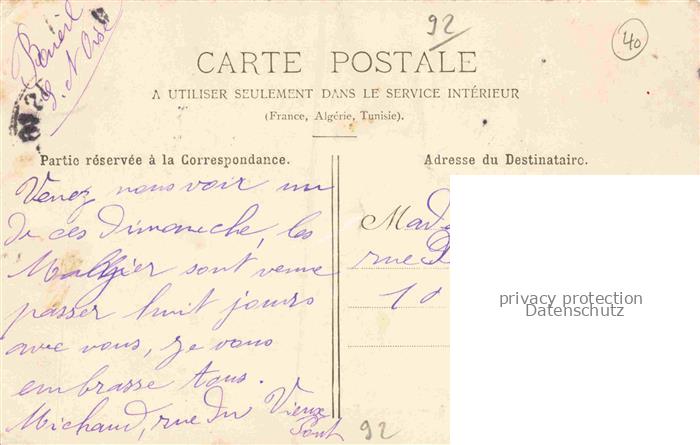 92
40
Rueil
S. N Oise
CARTE POSTALE
A UTILISER SEULEMENT DANS LE SERVICE INTÉRIEUR
(France, Algérie, Tunisie).
Partie réservée à la Correspondance.
Adresse du Destinataire.
Venez nous voir un
de ces Dimaneche, les
sont venue
passer huit jours
avec vous, je vous
embrasse tous.
Michaud, rue du Vieux
Pont
Mad
rue
10
privacy protection
Datenschutz
92